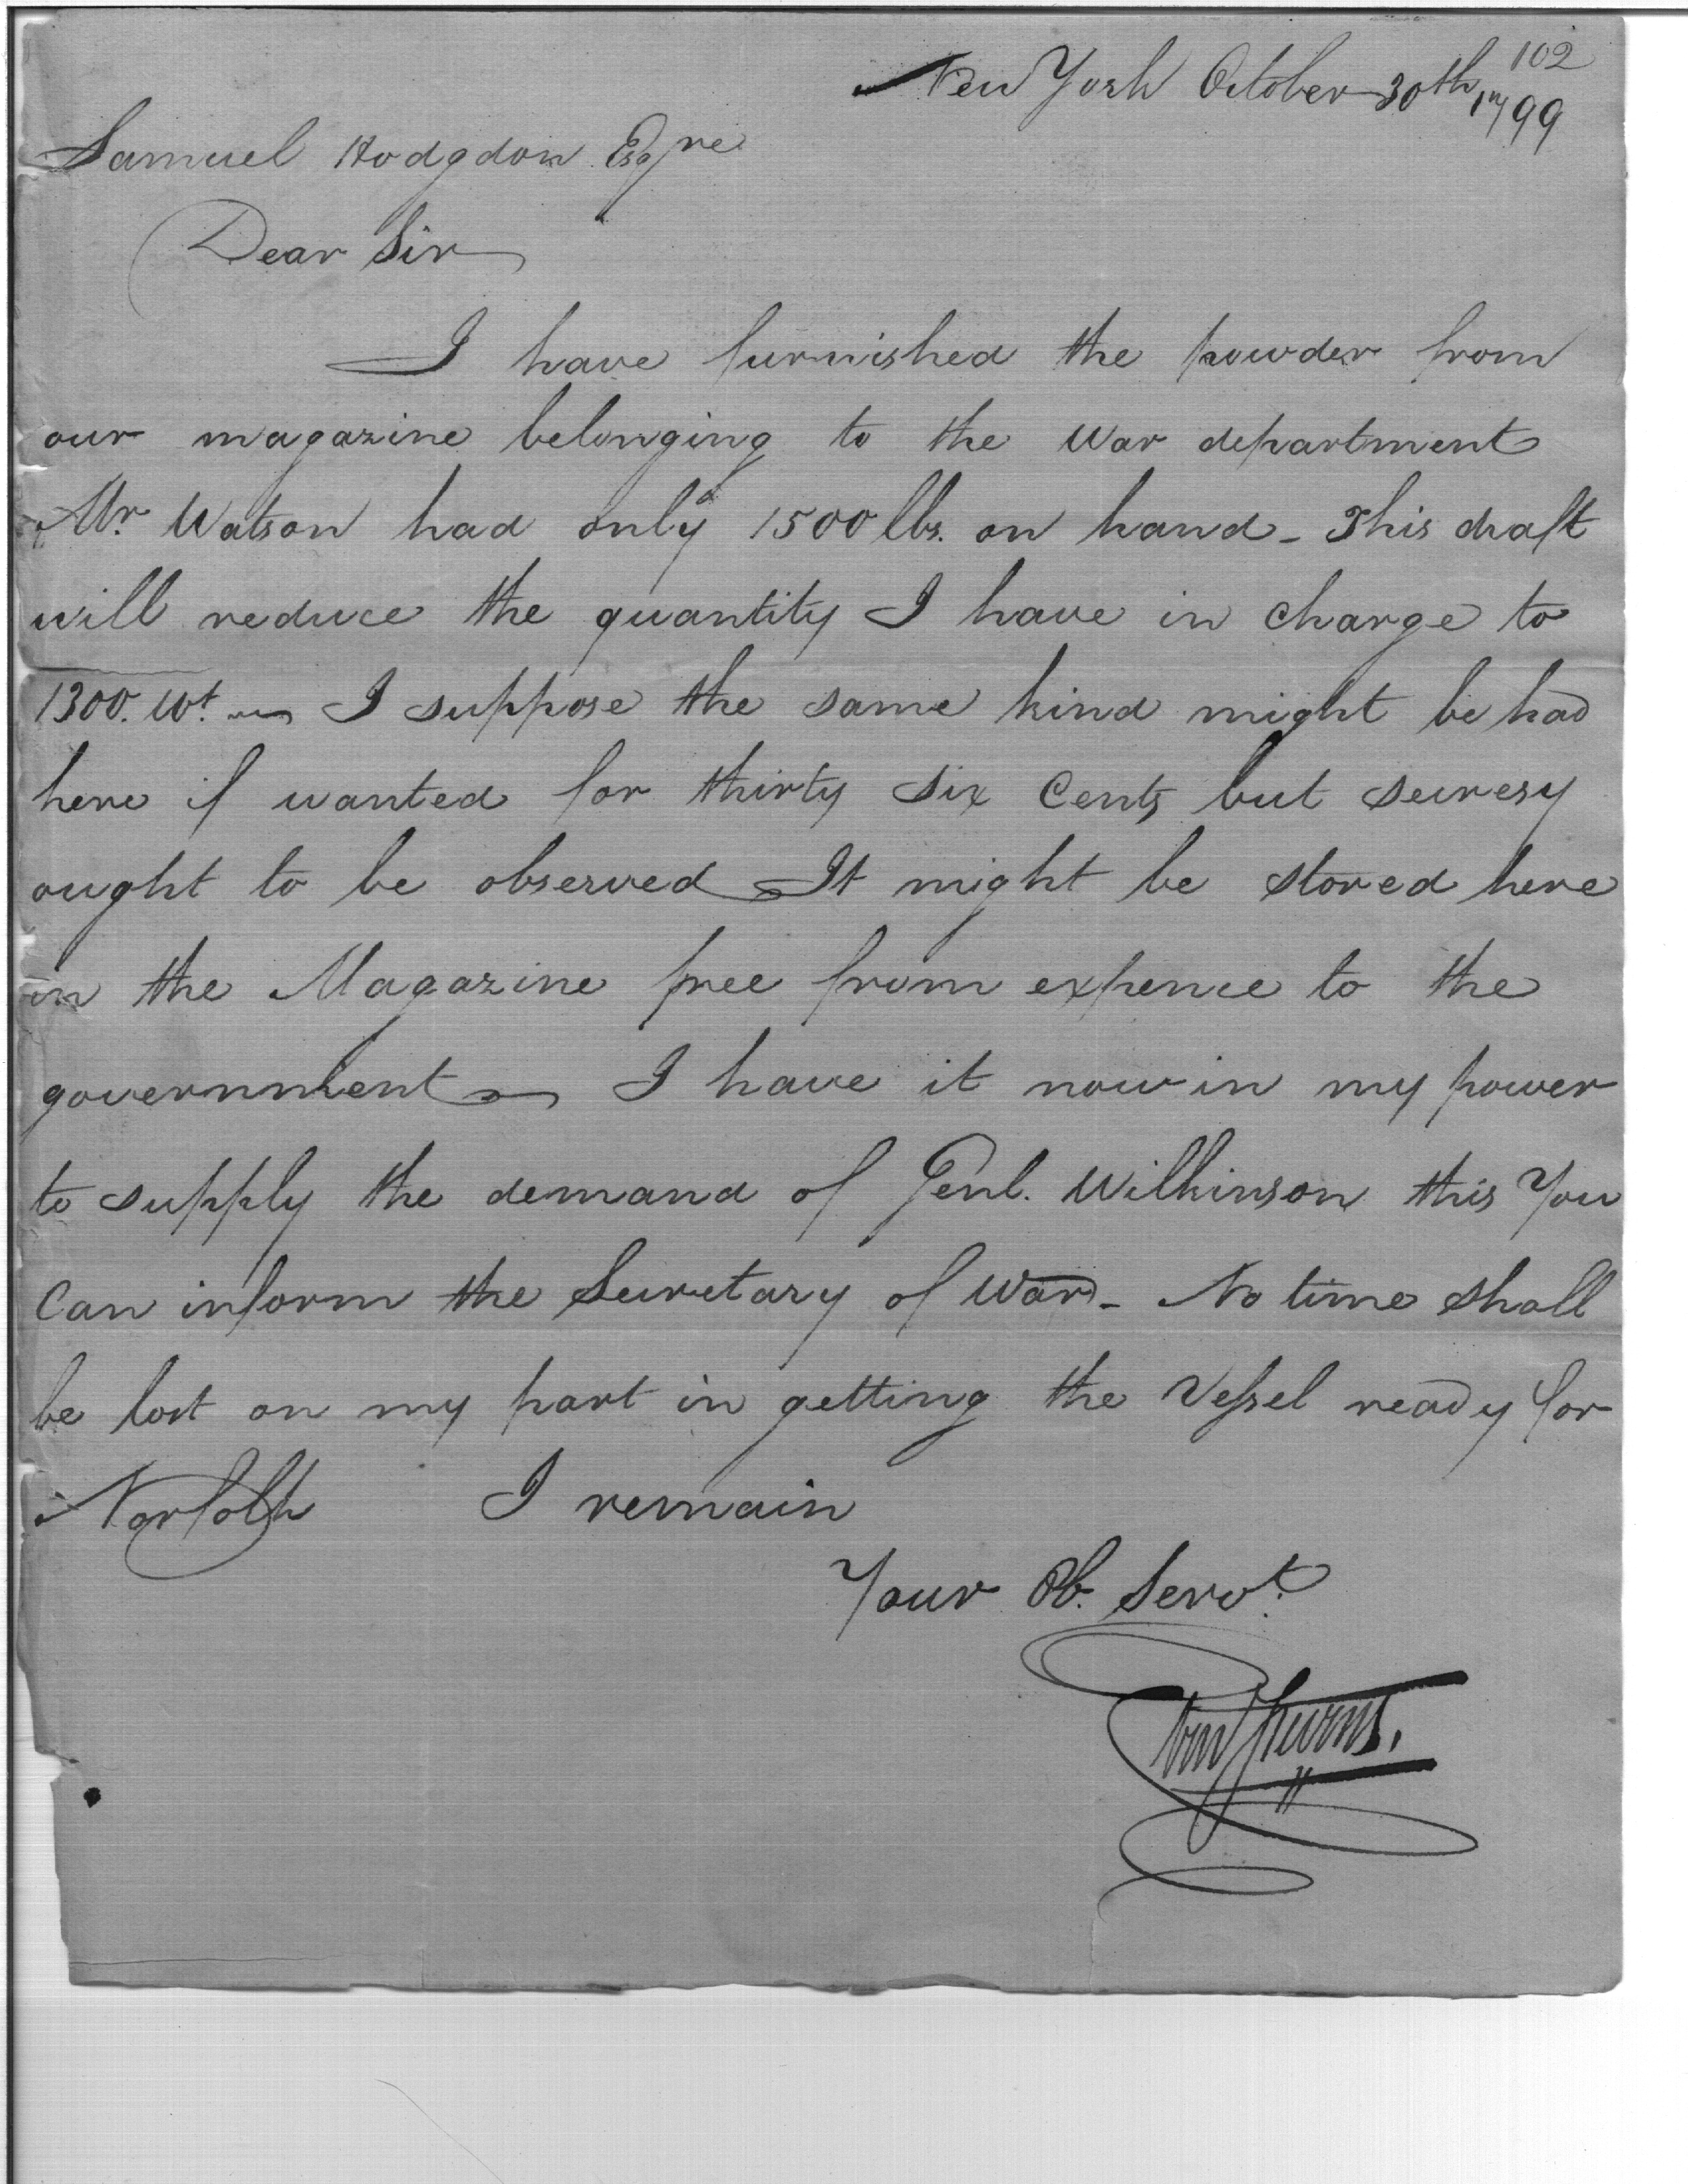 102
New York October 30th 1799
Samuel Hodgdon Esqre
Dear Sir
I have furnished the powder from
our magazine belonging to the war department
Mr. Watson had only 1500 lbs. on hand - This draft
will reduce the quantity I have in charge to
1300. Wt. I suppose the same kind might be had
here if wanted for thirty six Cents but secresy
ought to be observed It might be stored here
in the Magazine free from expence to the
government I have it now in my power
to supply the demand of Genl. Wilkinson this You
Can inform the Secretary of War - No time shall
be lost on my part in getting the Vessel ready for
Norfolk I remain
Your Ob. Servt.